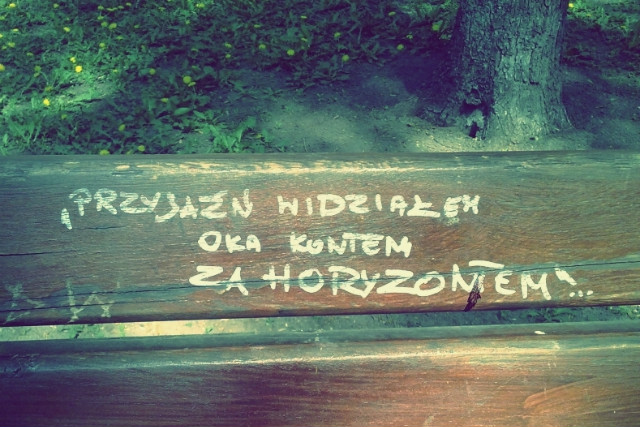 „PRZYJAŹŃ WIDZIAŁEM
OKA KONTEM
ZA HORYZONTEM"...